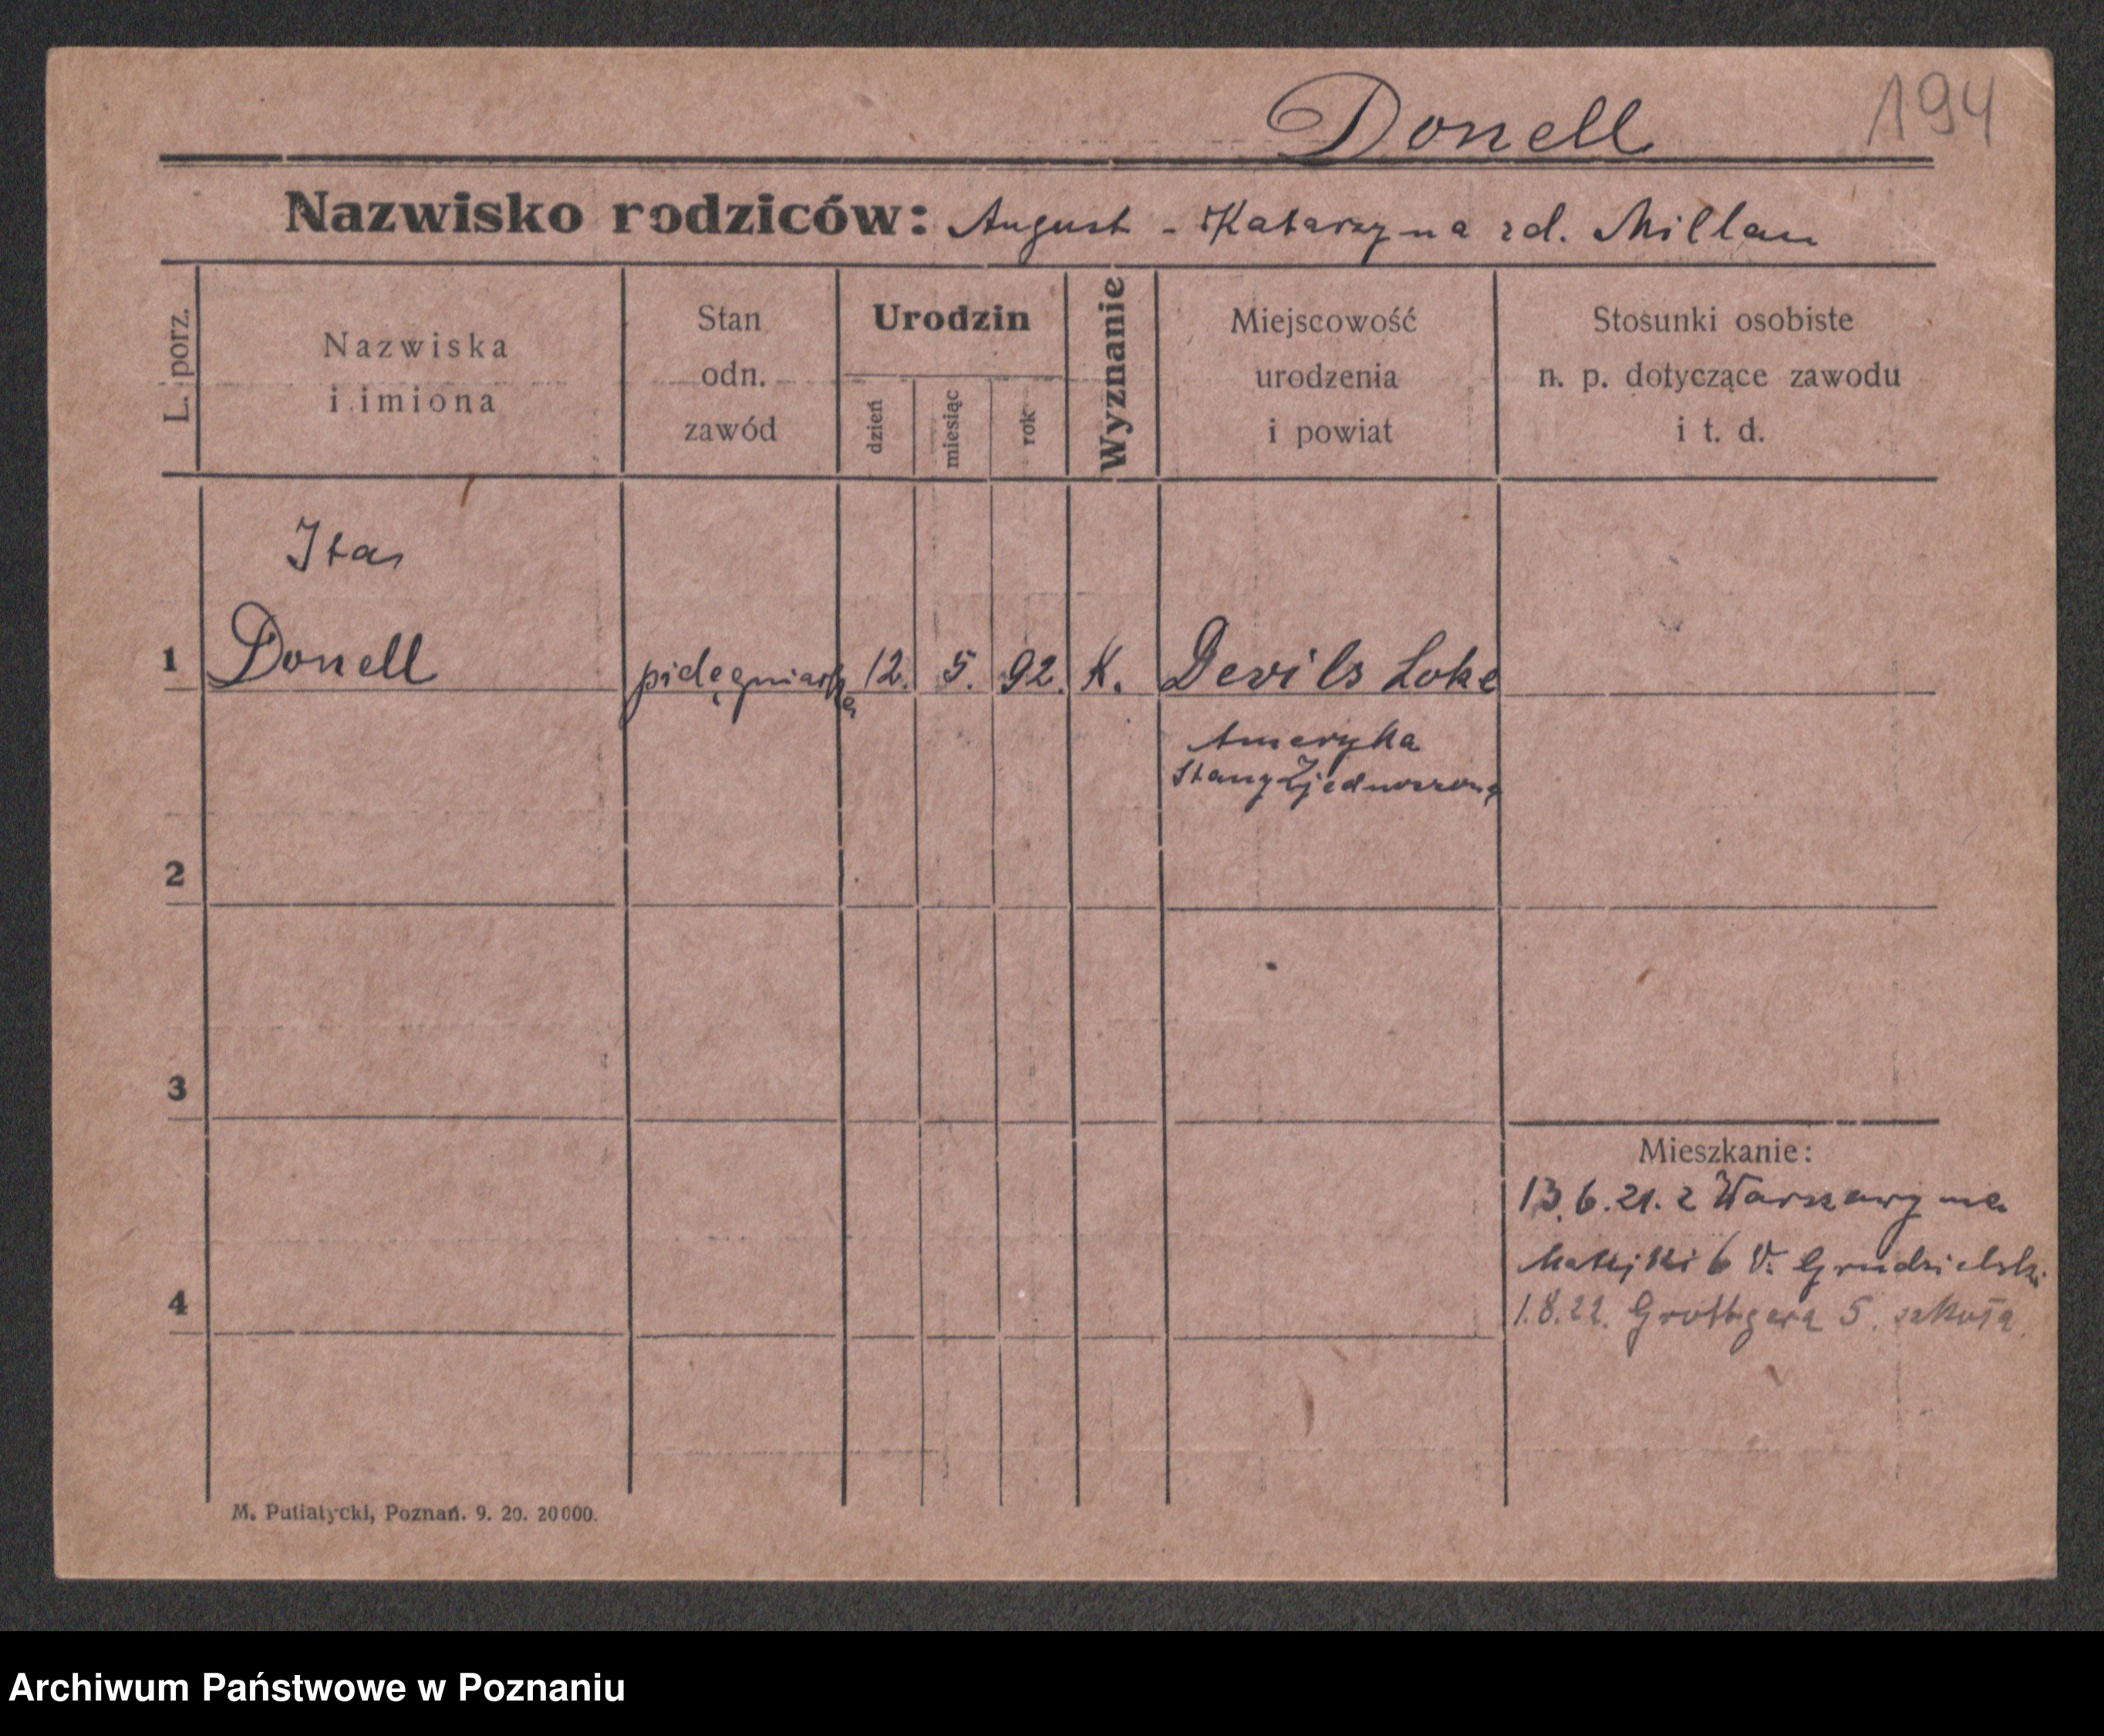 Donell 194
Nazwisko rodziców: August - Katarzyna zd. Millan
L. porz.
Nazwiska
i imiona
Stan
odn.
zawód
Urodzin
dzień
miesiąc
rok
Wyznanie
Miejscowość
urodzenia
i powiat
Stosunki osobiste
n. p. dotyczące zawodu
i t. d.
Ita
1 Donell pielęgniarka 12. 5. 92. K. Devils Loke
Ameryka
Stany Zjednoczone
2
3
Mieszkanie:
13.6.21. z Warszawy na
Matejki 6 Grudzielski
4
1.8.22. Grottgera 5. szkoła.
M. Putiatycki, Poznań. 9. 20. 20000.
Archiwum Państwowe w Poznaniu